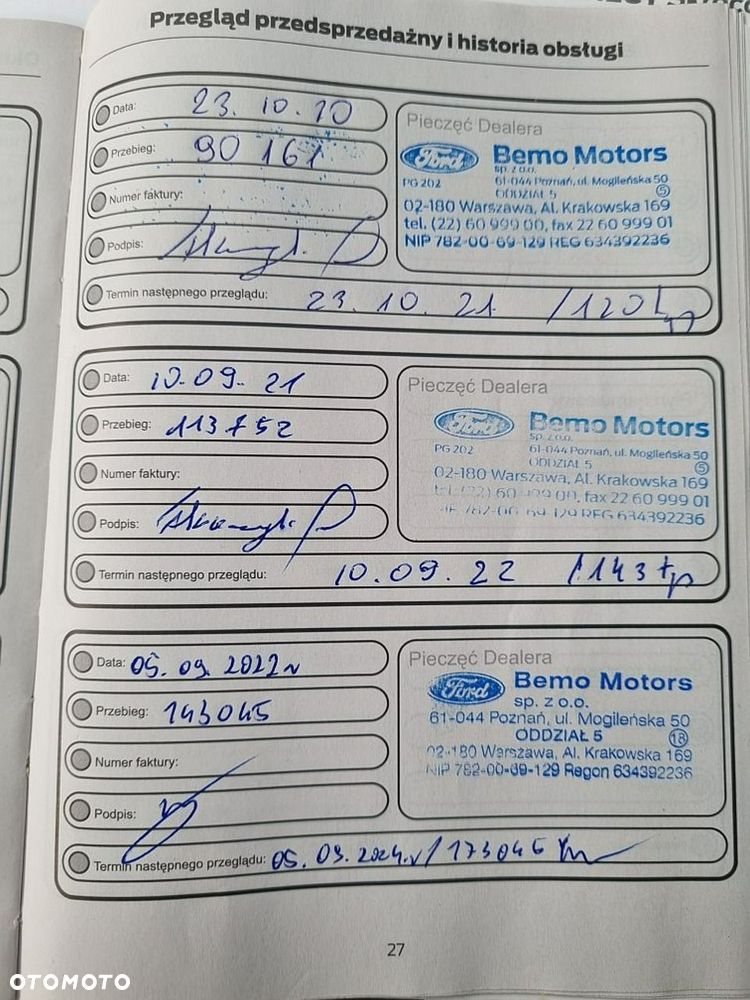 Przegląd przedsprzedażny i historia obsługi
Data: 23. 10. 20
Przebieg: 90 161
Numer faktury:
Podpis:
Termin następnego przeglądu: 23. 10. 21 /120
Pieczęć Dealera
Ford Bemo Motors
sp. z o.o.
PG 202 61-044 Poznań, ul. Mogileńska 50
ODDZIAŁ 5 5
02-180 Warszawa, Al. Krakowska 169
tel. (22) 60 999 00, fax 22 60 999 01
NIP 782-00-69-129 REG 634392236
Data: 10.09. 21
Przebieg: 113752
Numer faktury:
Podpis:
Termin następnego przeglądu: 10.09. 22 /143 tp
Pieczęć Dealera
Ford Bemo Motors
sp. z o.o.
PG 202 61-044 Poznań, ul. Mogileńska 50
ODDZIAŁ 5 5
02-180 Warszawa, Al. Krakowska 169
tel. (22) 60 999 00, fax 22 60 999 01
NIP 782-00-69-129 REG 634392236
Data: 05. 09. 2022r
Przebieg: 143045
Numer faktury:
Podpis:
Termin następnego przeglądu: 05. 09. 2024.r / 173045 km
Pieczęć Dealera
Ford Bemo Motors
sp. z o.o.
61-044 Poznań, ul. Mogileńska 50
ODDZIAŁ 5 18
02-180 Warszawa, Al. Krakowska 169
NIP 782-00-69-129 Regon 634392236
27
OTOMOTO